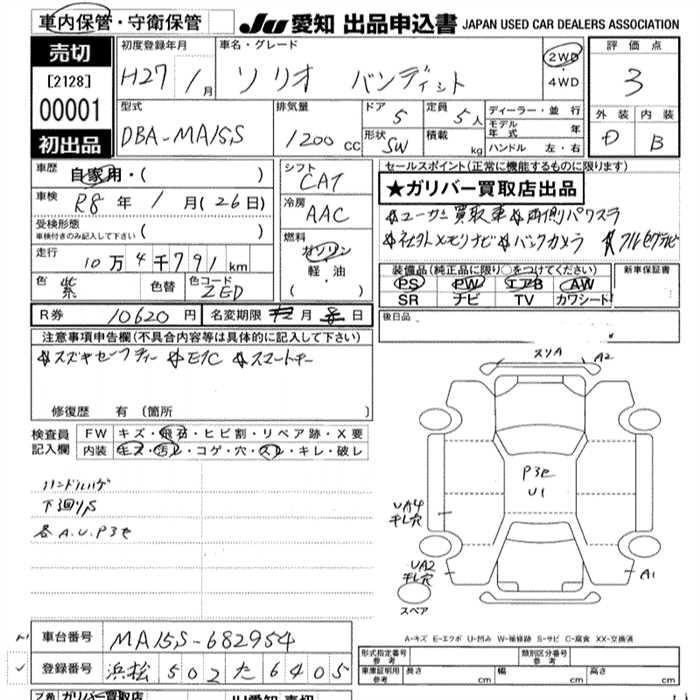 車内保管・守衛保管
JU 愛知 出品申込書 JAPAN USED CAR DEALERS ASSOCIATION
売切
[2128]
00001
初出品
初度登録年月
H27 / 1月
車名・グレード
ソリオ バンディット
2WD
・
4WD
評価点
3
型式
DBA-MA15S
排気量
1200 cc
ドア
5
定員
5人
形状
SW
積載
kg
ディーラー・並行
モデル年式 年
ハンドル 左・右
外装 内装
D B
車歴
自家用・( )
車検
R8年 1月(26日)
受検形態
車検付きのみ記入して下さい ( )
走行
10万4千791km
色
紫
色替
色コード
ZED
シフト
CAT
冷房
AAC
燃料
ガソリン
軽・油
( )
セールスポイント(正常に機能するものに限ります)
★ガリバー買取店出品
☆ユーザー買取車 ☆両側パワスラ
☆社外メモリナビ ☆バックカメラ ☆フルセグテレビ
装備品(純正品に限り○をつけてください)
PS PW エアB AW
SR ナビ TV カワシート
新車保証書
R券 10620円
名変期限 月 日
後日品
注意事項申告欄(不具合内容等は具体的に記入して下さい)
☆スズキセーフティー ☆ETC ☆スマートキー
修復歴 有 〔箇所 〕
検査員
記入欄
FW キズ・飛石・ヒビ割・リペア跡・X要
内装 キズ・汚レ・コゲ・穴・スレ・キレ・破レ
ハンドルハゲ
下廻りS
各A.U.P3セ
スリA
A2
P3セ
U1
UA4
キレ穴
UA2
キレ穴
A1
スペア
A-キズ E-エクボ U-凹み W-補修跡 S-サビ C-腐食 XX-交換済
車台番号 MA15S-682954
登録番号 浜松 502 た 6405
形式指定番号
参考
類別区分番号
参考
車庫証明用
参考
長さ cm 幅 cm 高さ cm
ガリバー買取店
JU愛知 売切